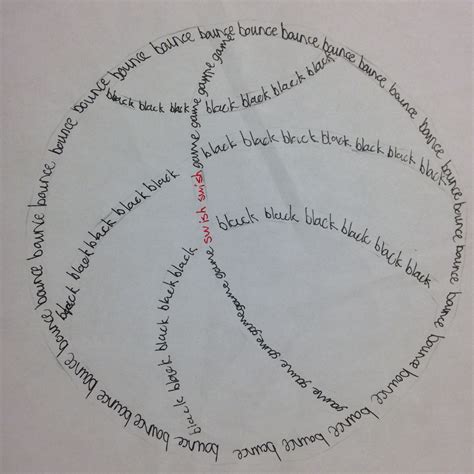 bounce bounce bounce bounce bounce bounce bounce bounce bounce bounce bounce bounce bounce bounce bounce bounce bounce bounce bounce bounce bounce bounce bounce bounce bounce bounce bounce bounce bounce bounce bounce bounce
game game game game game
swish swish
game game game game game game game
black black black
black black black black
black black black black black black black
black black black black black
black black black black black black
black black black black black